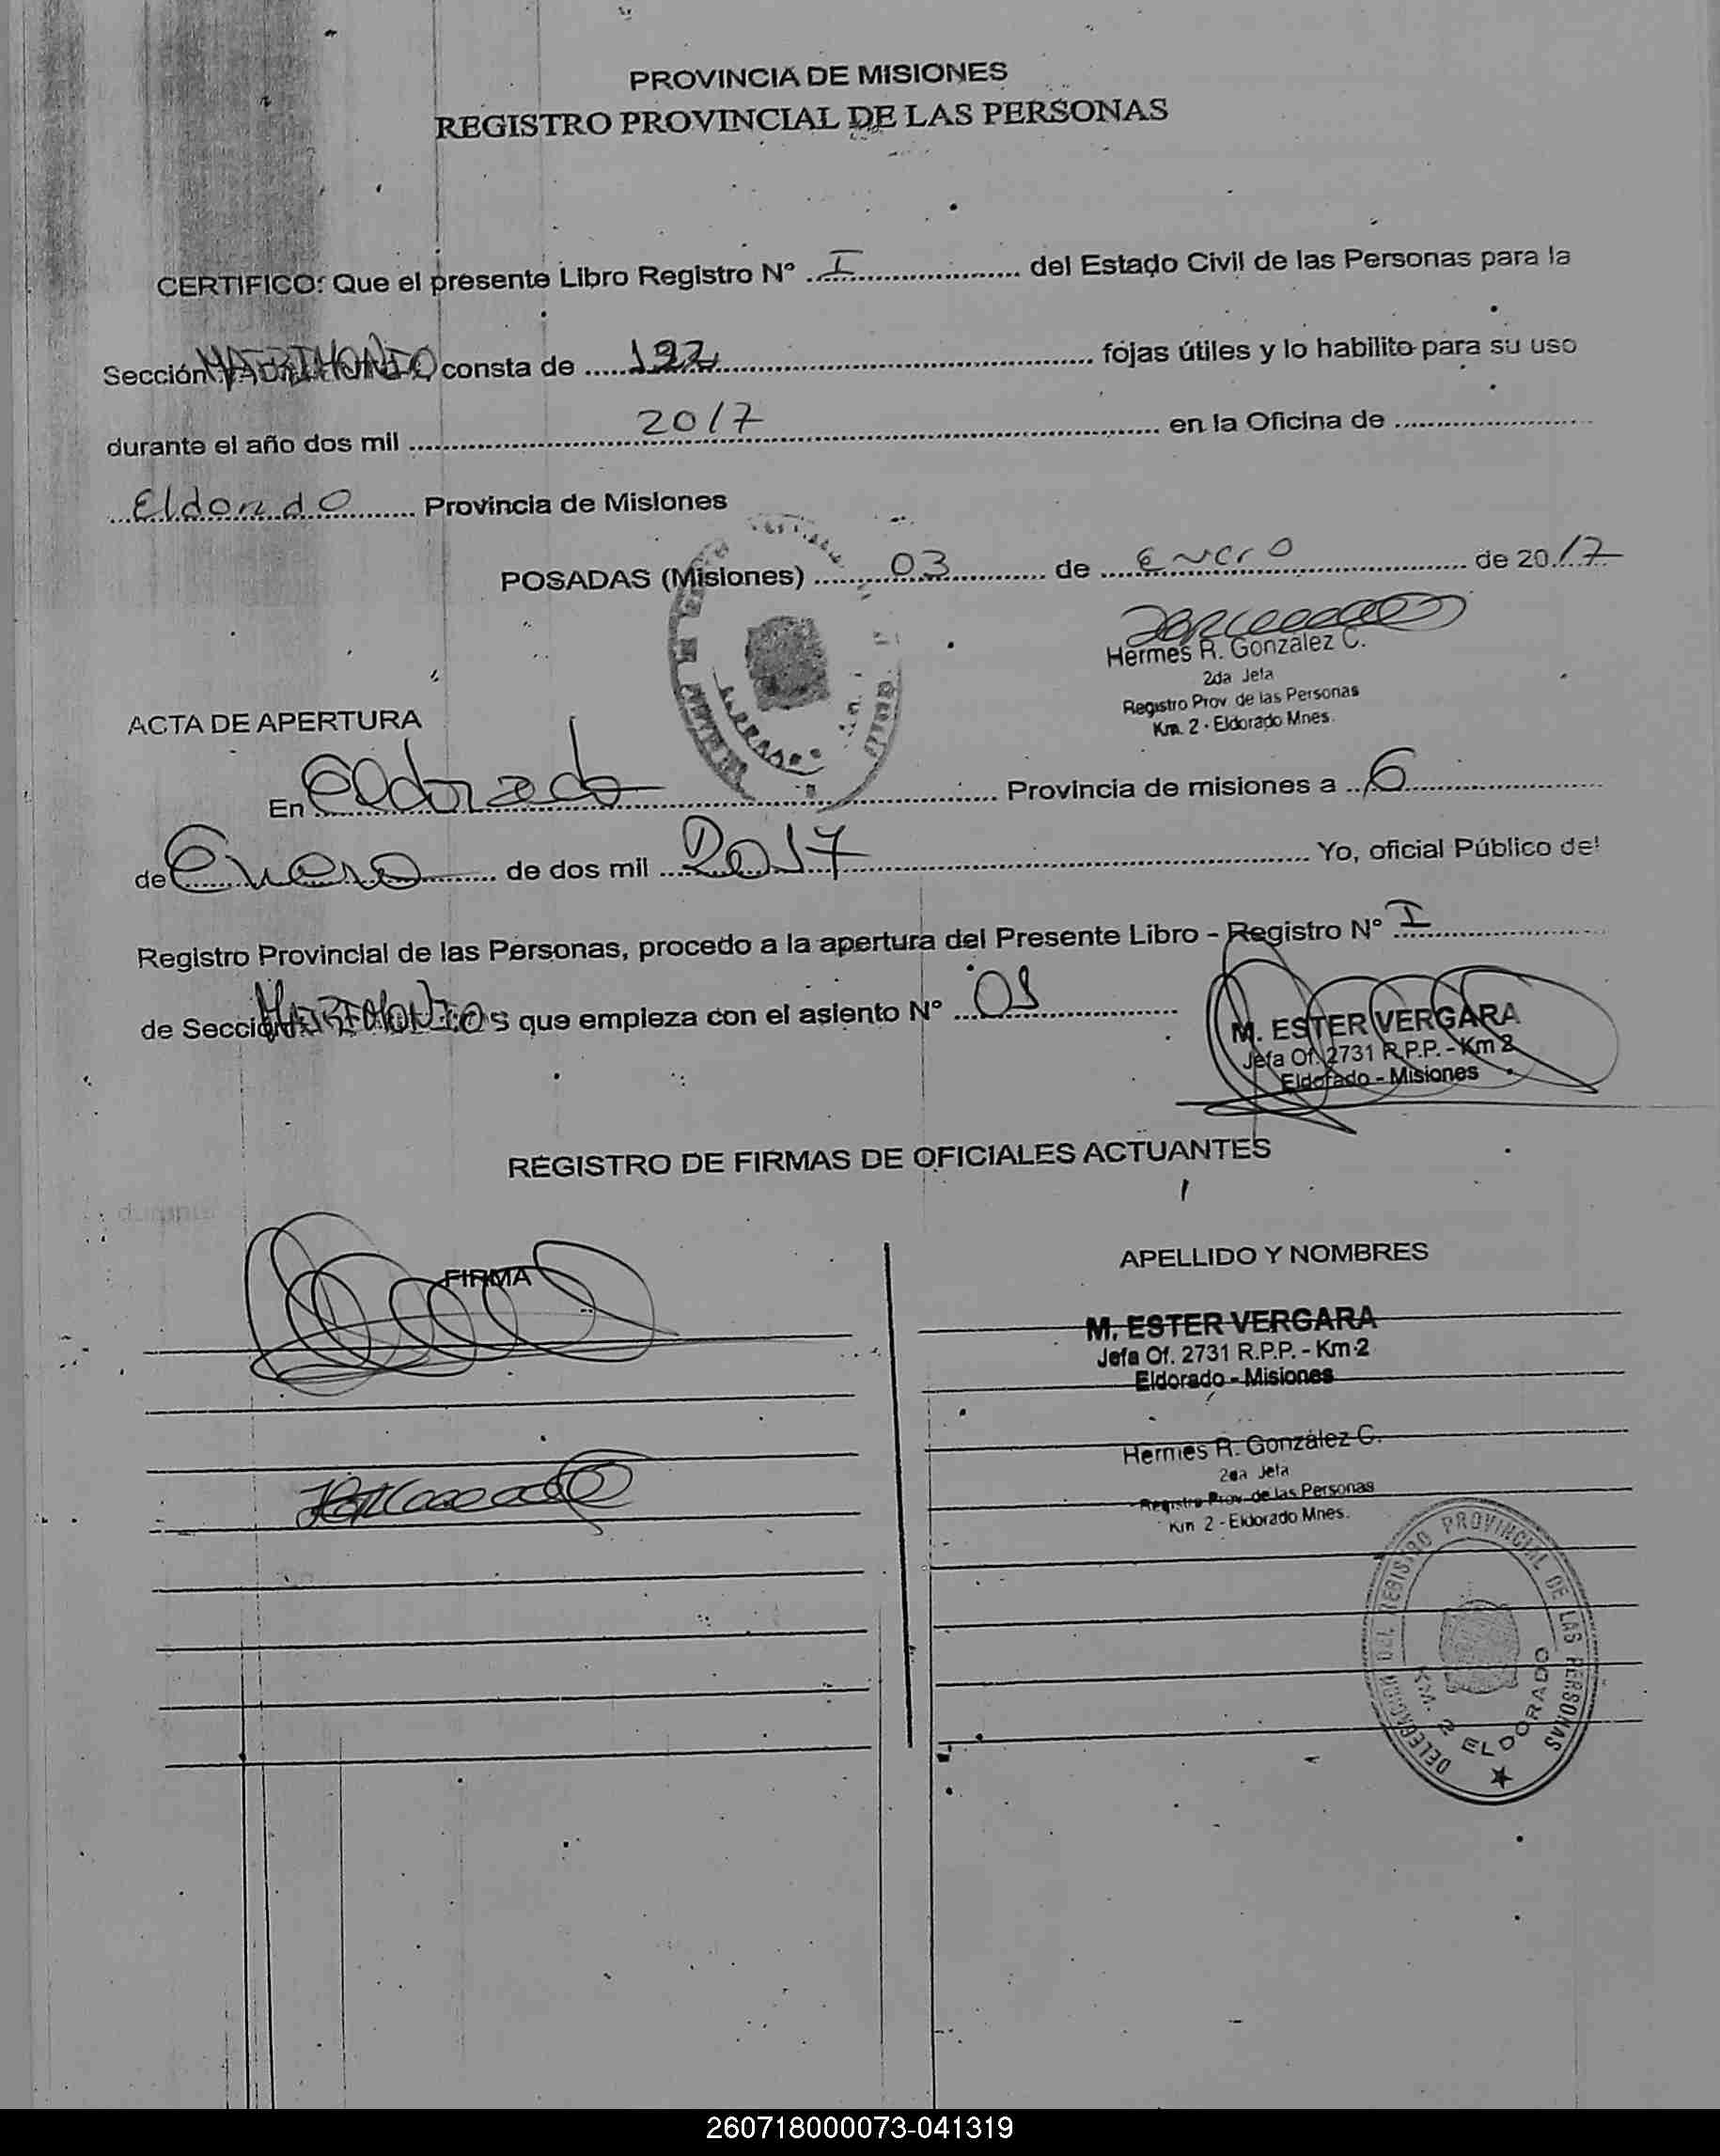 PROVINCIA DE MISIONES
REGISTRO PROVINCIAL DE LAS PERSONAS
CERTIFICO: Que el presente Libro Registro N° I del Estado Civil de las Personas para la
Sección MATRIMONIO consta de 192 fojas útiles y lo habilito para su uso
durante el año dos mil 2017 en la Oficina de
Eldorado Provincia de Misiones
POSADAS (Misiones) 03 de Enero de 2017
Hermes R. González C.
2da Jefa
Registro Prov. de las Personas
Km. 2 - Eldorado Mnes.
ACTA DE APERTURA
En Eldorado Provincia de misiones a 6
de Enero de dos mil 2017 Yo, oficial Público del
Registro Provincial de las Personas, procedo a la apertura del Presente Libro - Registro N° I
de Sección MATRIMONIOS que empieza con el asiento N° 01
M. ESTER VERGARA
Jefa Of. 2731 R.P.P. - Km 2
Eldorado - Misiones
REGISTRO DE FIRMAS DE OFICIALES ACTUANTES
durante
FIRMA
APELLIDO Y NOMBRES
M. ESTER VERGARA
Jefa Of. 2731 R.P.P. - Km 2
Eldorado - Misiones
Hermes R. González C.
2da Jefa
Registro Prov. de las Personas
Km 2 - Eldorado Mnes.
DELEGACION DEL REGISTRO PROVINCIAL DE LAS PERSONAS
KM. 2 ELDORADO
260718000073-041319